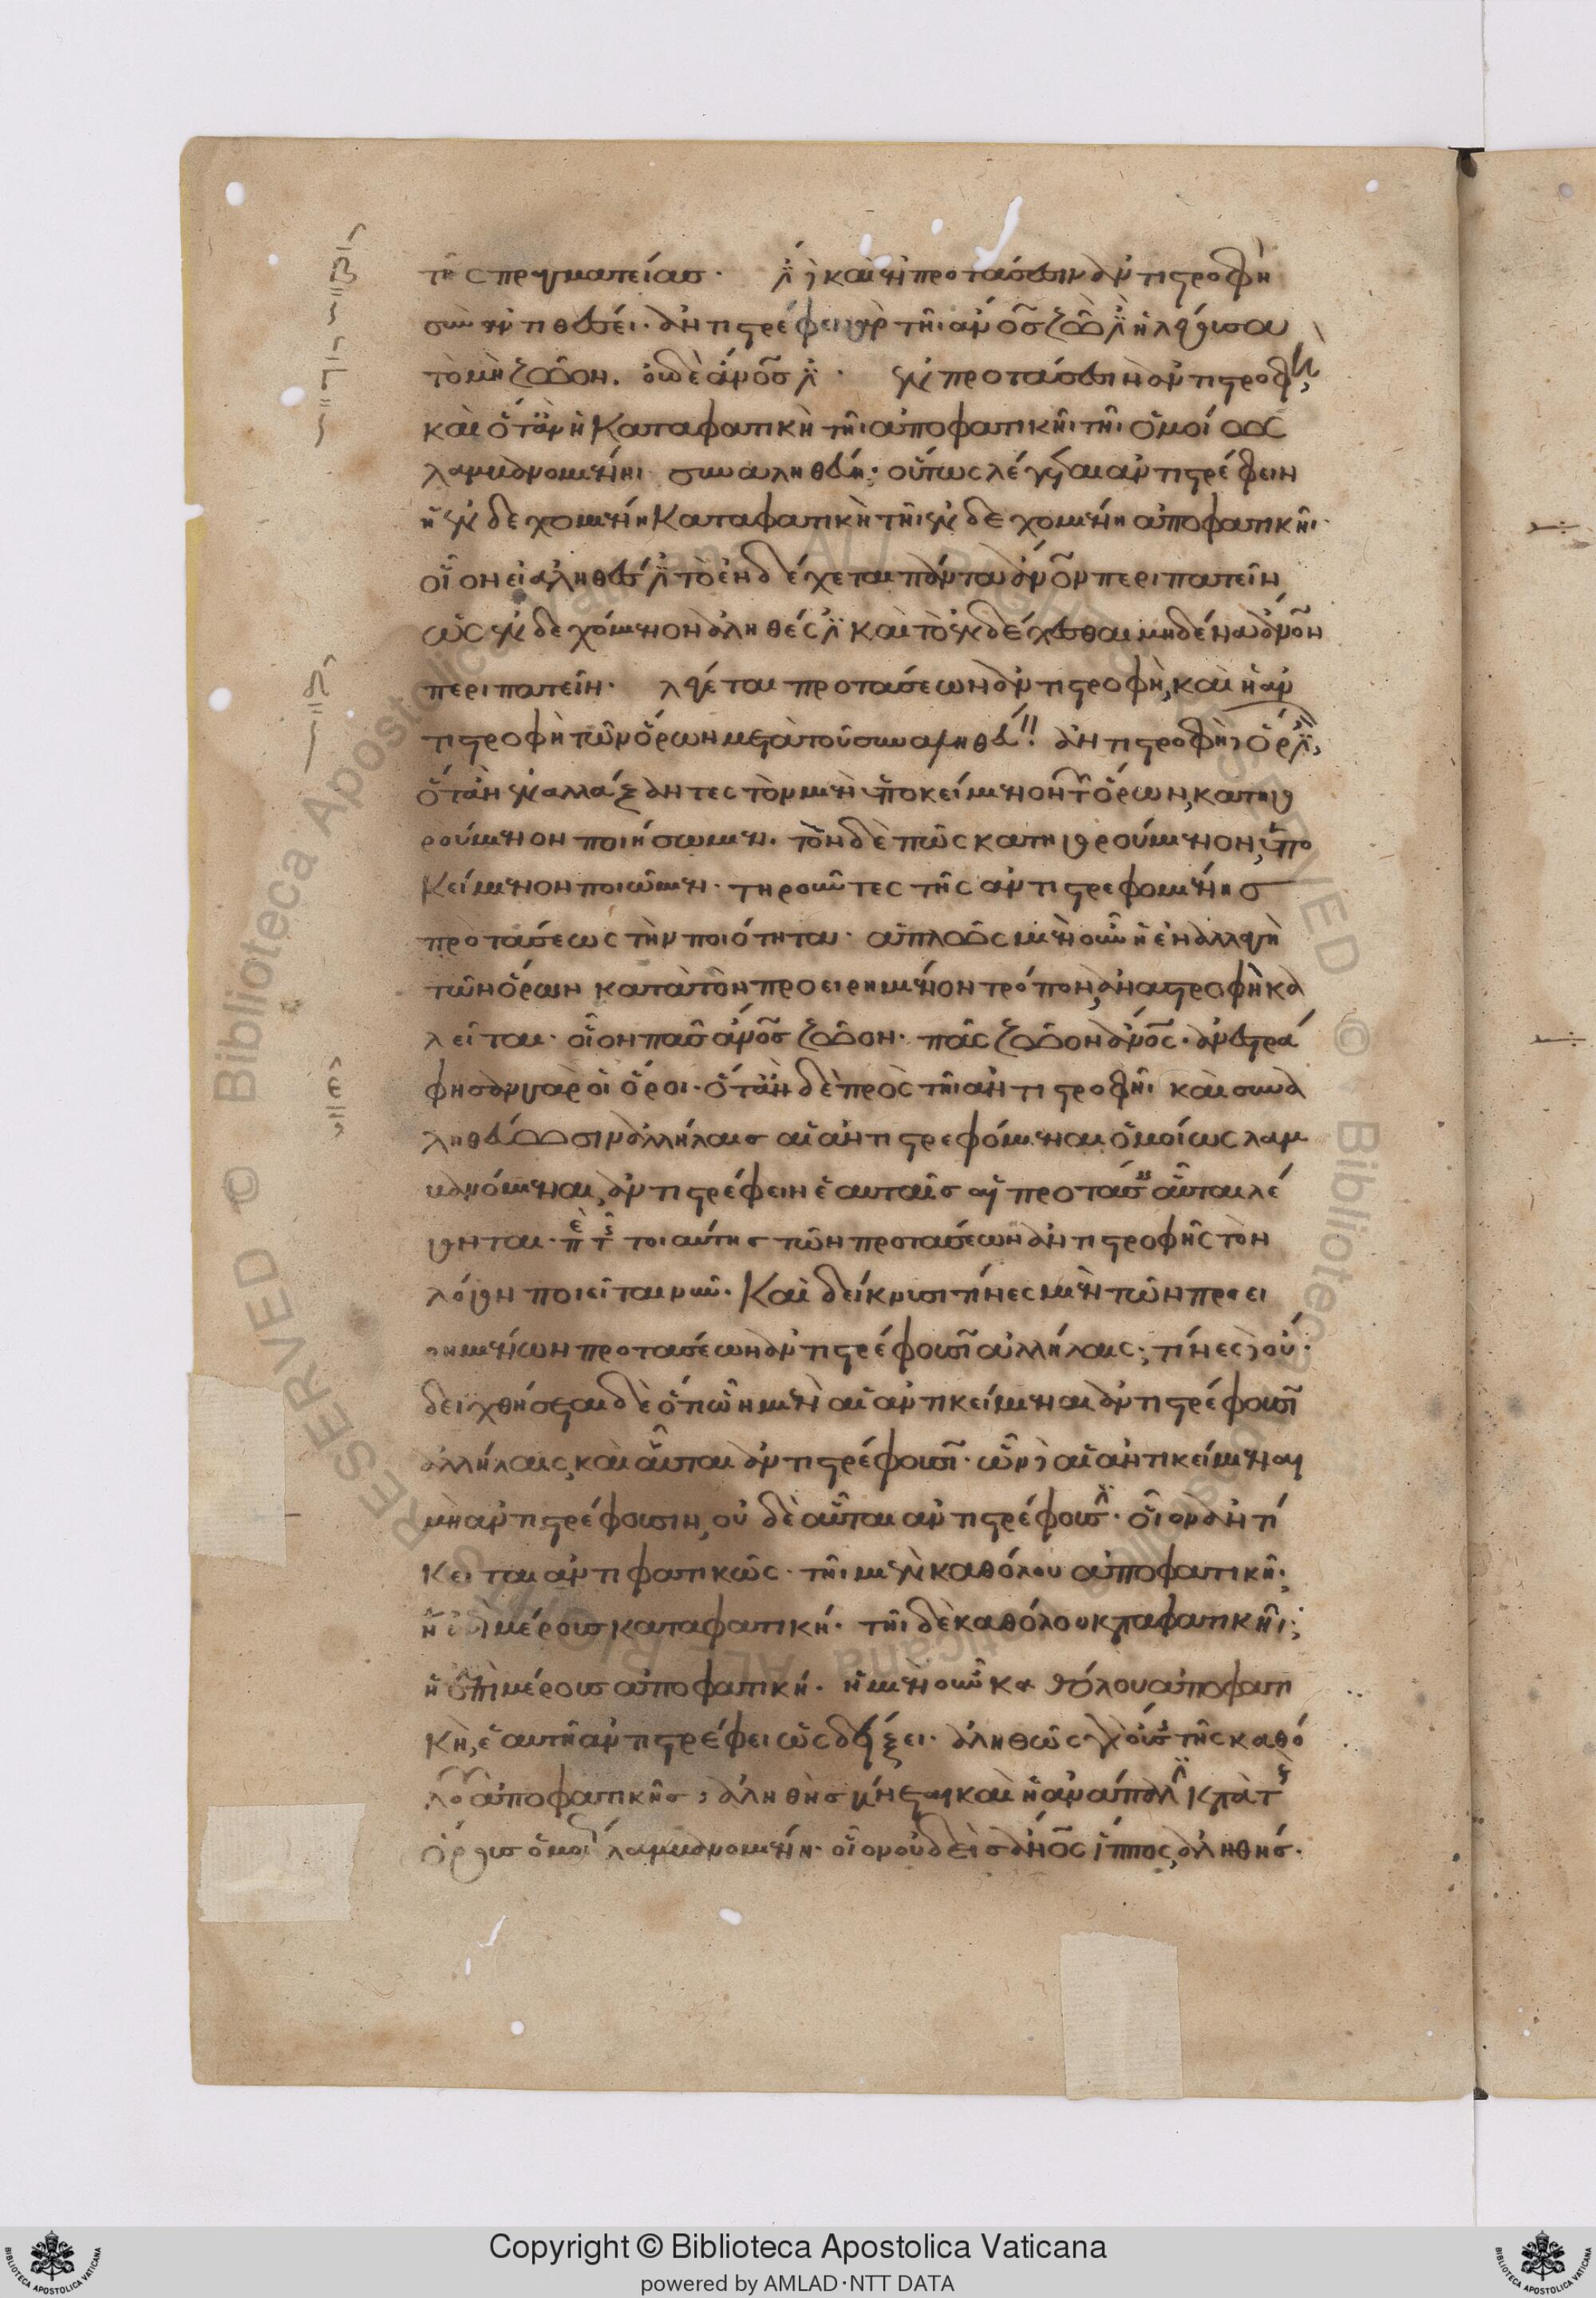 τῆς πραγματείας. ἔστι δὲ καὶ ἐν προτάσεσιν ἀντιστροφὴ
σὺν ἀντιθέσει. ἀντιστρέφει γὰρ τῆι ἄνθρωπος ζῶόν ἐστιν ἡ λέγουσα
τὸ μὴ ζῶον, οὐδὲ ἄνθρωπός ἐστιν. ἐν προτάσεσιν ἀντιστροφὴ,
καὶ ὅταν ἡ καταφατικὴ τῆι ἀποφατικῆι τῆι ὁμοίως
λαμβανομένηι συναληθεύηι. οὕτως λέγεται ἀντιστρέφειν
ἡ ἐνδεχομένη καταφατικὴ τῆι ἐνδεχομένηι ἀποφατικῆι.
οἷον εἰ ἀληθές ἐστι τὸ ἐνδέχεται πάντα ἄνθρωπον περιπατεῖν
ὡς ἐνδεχόμενον ἀληθές ἐστι καὶ τὸ ἐνδέχεσθαι μηδένα ἄνθρωπον
περιπατεῖν. λέγεται προτάσεων ἀντιστροφὴ, καὶ ἡ ἀν
τιστροφὴ τῶν ὅρων μετὰ τοῦ συναληθεύειν. ἀντιστροφὴ δὲ ὅρων ἐστιν,
ὅταν ἐναλλάξαντες τὸν μὲν ὑποκείμενον τῶν ὅρων, κατηγο
ρούμενον ποιήσωμεν. τὸν δὲ πῶς κατηγορούμενον, ὑπο
κείμενον ποιῶμεν. τηροῦντες τῆς ἀντιστρεφομένης
προτάσεως τὴν ποιότητα. ἁπλῶς μὲν οὖν ἡ ἐναλλαγὴ
τῶν ὅρων κατὰ τὸν προειρημένον τρόπον, ἀναστροφὴ κα
λεῖται. οἷον πᾶς ἄνθρωπος ζῶον. πᾶν ζῶον ἄνθρωπος. ἀνεστρά
φησαν γὰρ οἱ ὅροι. ὅταν δὲ πρὸς τῆι ἀντιστροφῆι καὶ συνα
ληθεύωσιν ἀλλήλαις αἱ ἀντιστρεφόμεναι ὁμοίως λαμ
βανόμεναι, ἀντιστρέφειν ἑαυταῖς αἱ προτάσεις αὗται λέ
γονται. περὶ τῆς τοιαύτης τῶν προτάσεων ἀντιστροφῆς τὸν
λόγον ποιεῖται νῦν. καὶ δείκνυσι τίνες μὲν τῶν προει
ρημένων προτάσεων ἀντιστρέφουσιν ἀλλήλαις, τίνες δὲ οὔ.
δειχθήσεται δὲ ὅτι ὧν μὲν αἱ ἀντικείμεναι ἀντιστρέφουσιν
ἀλλήλαις, καὶ αὗται ἀντιστρέφουσιν. ὧν δὲ αἱ ἀντικείμεναι
μὴ ἀντιστρέφουσιν, οὐδὲ αὗται ἀντιστρέφουσιν. οἷον ἀντί
κειται ἀντιφατικῶς. τῆι μὲν καθόλου ἀποφατικῆι,
ἡ ἐπὶ μέρους καταφατική. τῆι δὲ καθόλου καταφατικῆι,
ἡ ἐπὶ μέρους ἀποφατική. ἡ μὲν οὖν καθόλου ἀποφατι
κὴ, ἑαυτῆι ἀντιστρέφει ὡς δείξει. ἀληθῶς γὰρ οὔσης τῆς καθό
λου ἀποφατικῆς, ἀληθὴς μένει καὶ ἡ ἀνάπαλιν κατὰ τοὺς
ὅρους ὁμοίως λαμβανομένη. οἷον οὐδεὶς ἄνθρωπος ἵππος, ἀληθής.